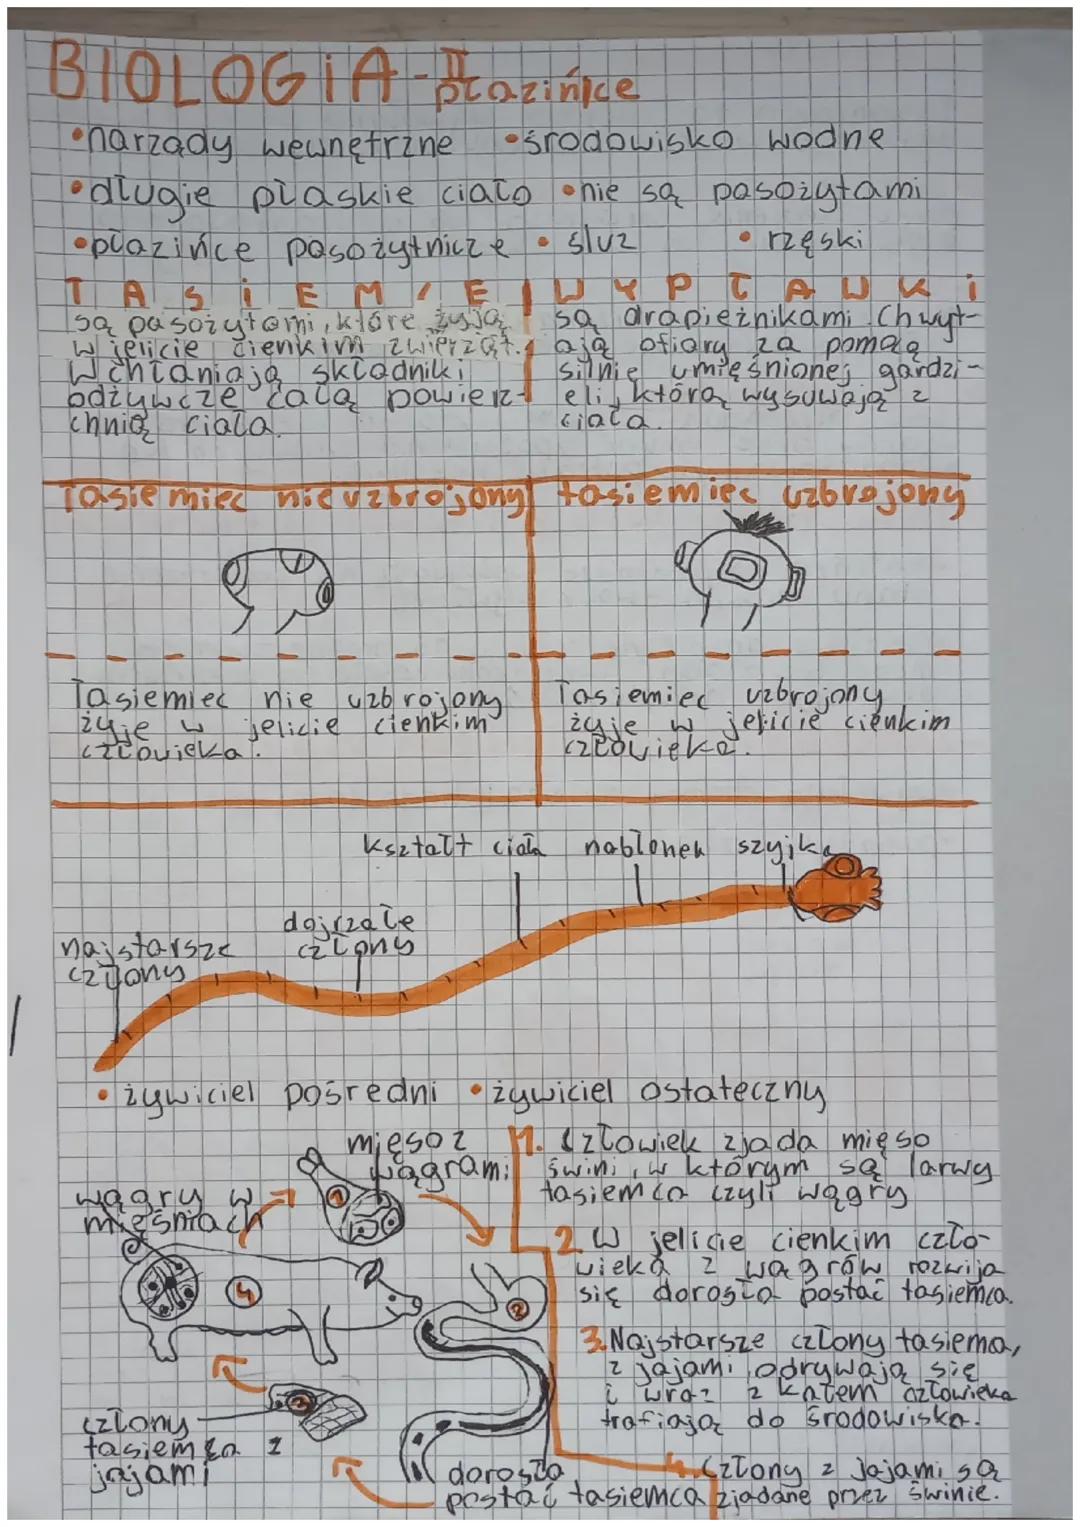 BIOLOGIA - II
płazińce
•narządy wewnętrzne •środowisko wodne
•długie płaskie ciało •nie są pasożytami
•płazińce pasożytnicze •śluz •rzęski
TASIEMCE
są pasożytami, które żyją
w jelicie cienkim zwierząt.
Wchłaniają składniki
odżywcze całą powierz-
chnią ciała.
WYPŁAWKI
są drapieżnikami. Chwyt-
ają ofiary za pomocą
silnie umięśnionej gardzi-
eli, którą wysuwają z
ciała.
Tasiemiec nieuzbrojony
tasiemiec uzbrojony
Tasiemiec nie uzbrojony
żyje w jelicie cienkim
człowieka.
Tasiemiec uzbrojony
żyje w jelicie cienkim
człowieka.
kształt ciała nabłonek szyjka
dojrzałe
człony
najstarsze
człony
•żywiciel pośredni •żywiciel ostateczny
mięso z
wągrami
wągry w
mięśniach
1
4
2
3
człony
tasiemca z
jajami
dorosła
postać tasiemca
1. Człowiek zjada mięso
świni, w którym są larwy
tasiemca czyli wągry
2 W jelicie cienkim czło-
wieka z wągrów rozwija
się dorosła postać tasiemca.
3. Najstarsze człony tasiemca,
z jajami odrywają się
i wraz z kałem człowieka
trafiają do środowiska.
4. Człony z jajami są
zjadane przez świnie.